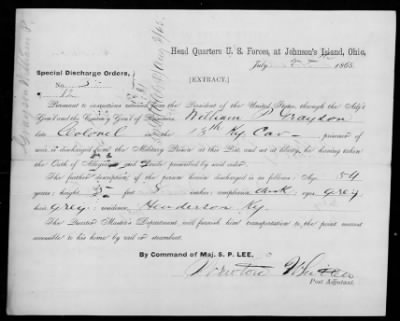 Grayson William P.
Head Quarters U. S. Forces, at Johnson's Island, Ohio,
July 1865.
Special Discharge Orders,
No.
[EXTRACT.]
Pursuant to instructions received from the President of the United States, through the Adj't
Gen'l and the Com'sary Gen'l of Prisoners, William P Grayson
late Colonel in the 13th Ky Cav prisoner of
war is discharged from the Military Prison at this Post, and set at liberty, he having taken
the Oath of and prescribed by said order.
The further description of the person herein discharged is as follows: Age 54
years; height 5 feet 8 inches; complexion dark; eyes Grey
hair Grey; residence Henderson Ky.
The Quarter Master's Department will furnish him transportation to the point nearest
accessible to his home by rail or steamboat.
By Command of Maj. S. P. LEE.
Newton
Post Adjutant.